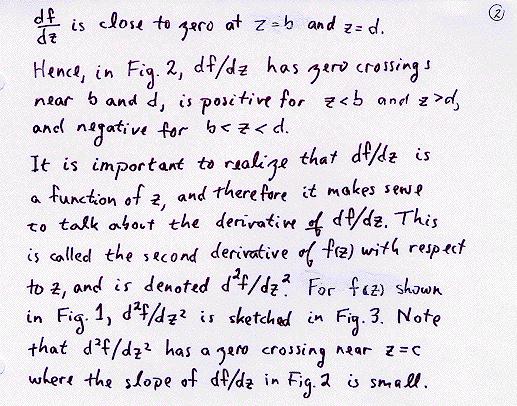 df/dz is close to zero at z=b and z=d. ②
Hence, in Fig. 2, df/dz has zero crossings
near b and d, is positive for z<b and z>d,
and negative for b<z<d.
It is important to realize that df/dz is
a function of z, and therefore it makes sense
to talk about the derivative of df/dz. This
is called the second derivative of f(z) with respect
to z, and is denoted d²f/dz². For f(z) shown
in Fig. 1, d²f/dz² is sketched in Fig. 3. Note
that d²f/dz² has a zero crossing near z=c
where the slope of df/dz in Fig. 2 is small.